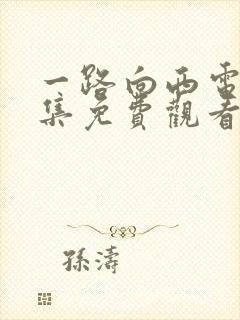 一路向西電
集免費觀看
孫濤